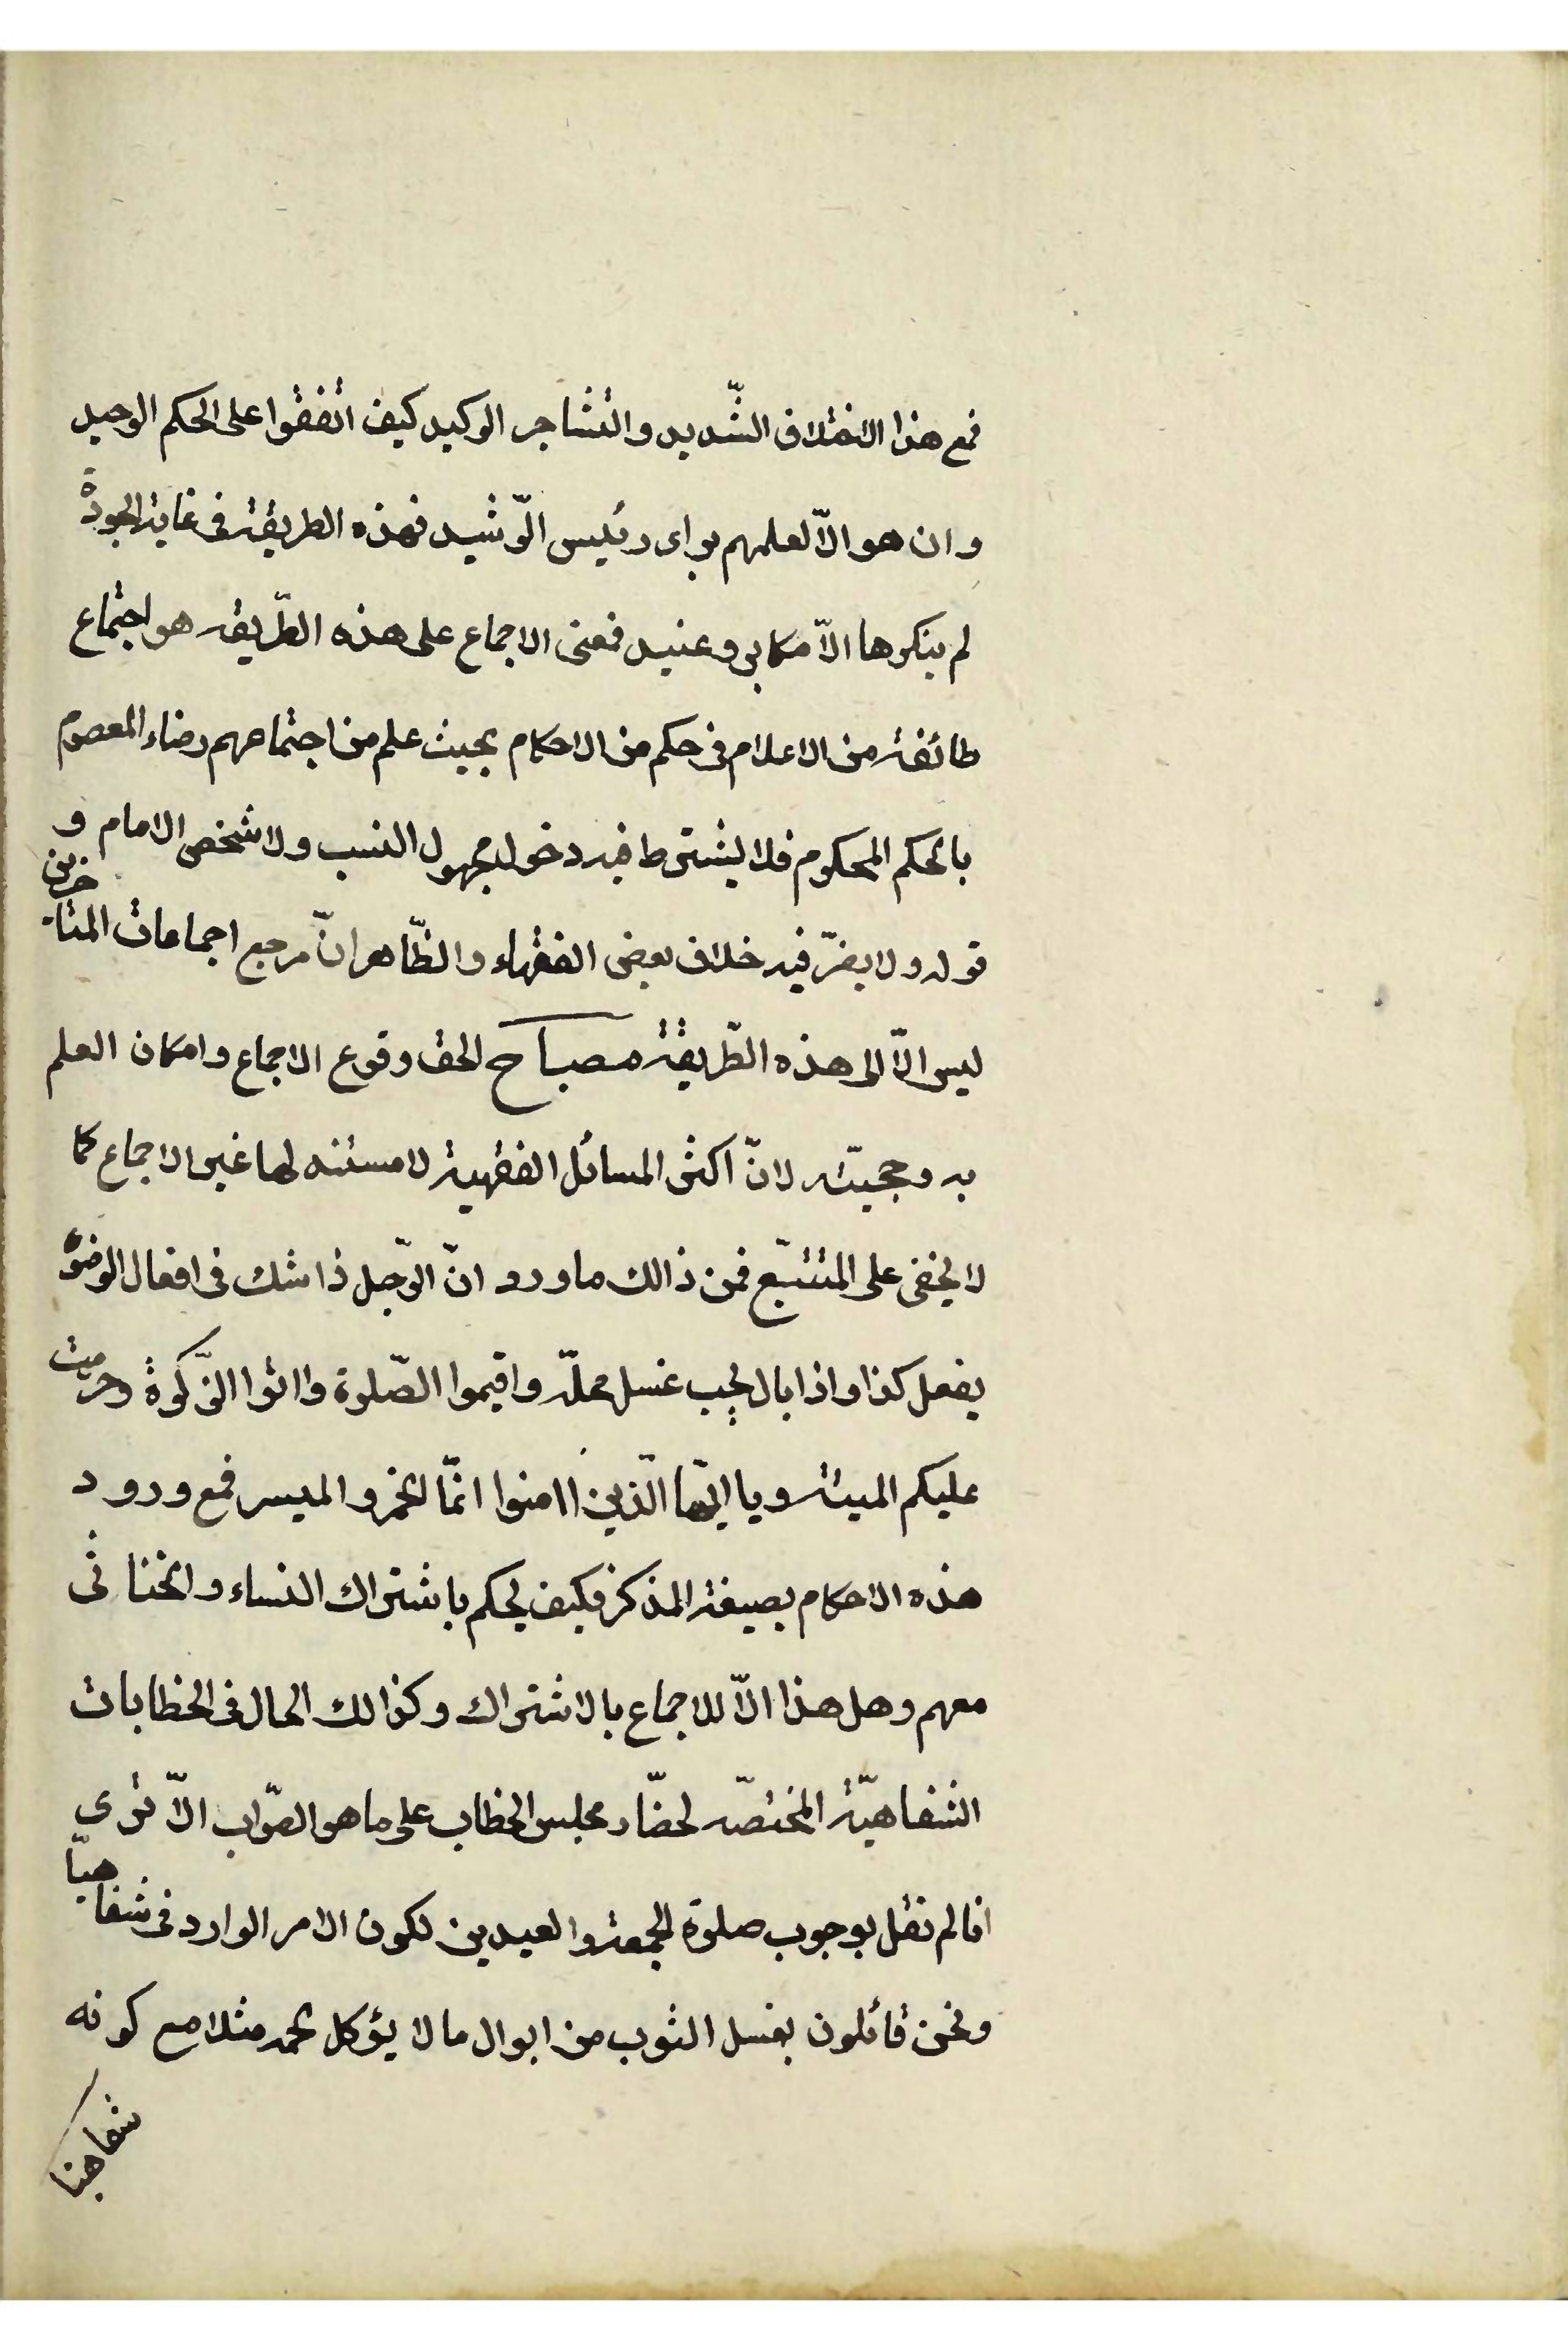 فمع هذا الاختلاف الشّديد والتشاجر الوكيد كيف اتفقوا على الحكم الوحيد
وان هو الّا لعلمهم براى رئيس الرّشيد فهذه الطريقة فى غاية الجودة
لم ينكرها الّا مكابر وعنيد فمعنى الاجماع على هذه الطّريقه هو اجتماع
طائفة من الاعلام فى حكم من الاحكام بحيث علم من اجتماعهم رضاء المعصوم
بالحكم المحكوم فلا يشترط فيه دخول مجهول النسب ولا شخص الامام و
قوله ولا يضرّ فيه خلاف بعض الفقهاء والظّاهر انّ مرجع اجماعات المتاخرين
ليس الّا الى هذه الطّريقة مصباح الحق وقوع الاجماع وامكان العلم
به وحجيّته لانّ اكثر المسائل الفقهية لا مستند لها غير الاجماع كما
لا يخفى على المتتبّع فمن ذالك ما ورد انّ الرّجل ذا شك فى افعال الوضوء
يفعل كذا واذا بال يجب غسل محلّه واقيموا الصّلوة واتوا الزّكوة وحرمت
عليكم الميتة ويا ايّها الّذين اامنوا انّما الخمر والميسر فمع ورود
هذه الاحكام بصيغة المذكر فكيف يحكم باشتراك النساء والخناثى
معهم وهل هذا الّا للاجماع بالاشتراك وكذالك الحال فى الخطابات
الشفاهيّة المختصّه لحضّار مجلس الخطاب على ما هو الصّواب الّا ترى
انا لم نقل بوجوب صلوة الجمعة والعيدين لكون الامر الوارد فى شفاهيّا
ونحن قائلون بغسل الثوب من ابوال ما لا يؤكل لحمه مثلا مع كونه
شفاهيا